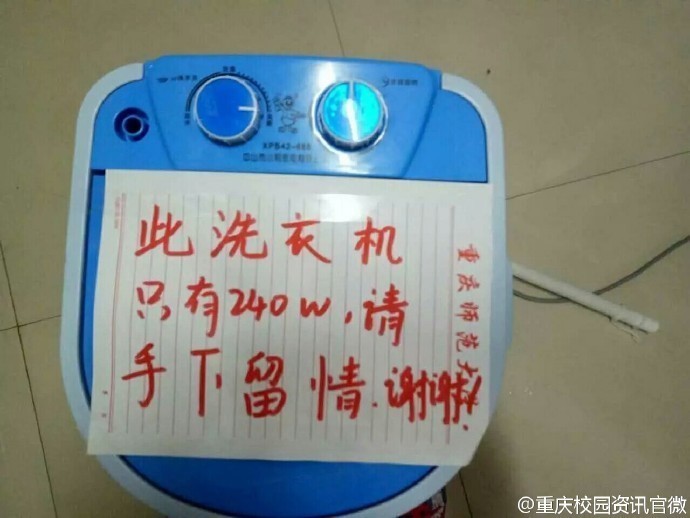 XPB42-688
此洗衣机
只有240W,请
手下留情.谢谢!
重庆师范大
@重庆校园资讯官微